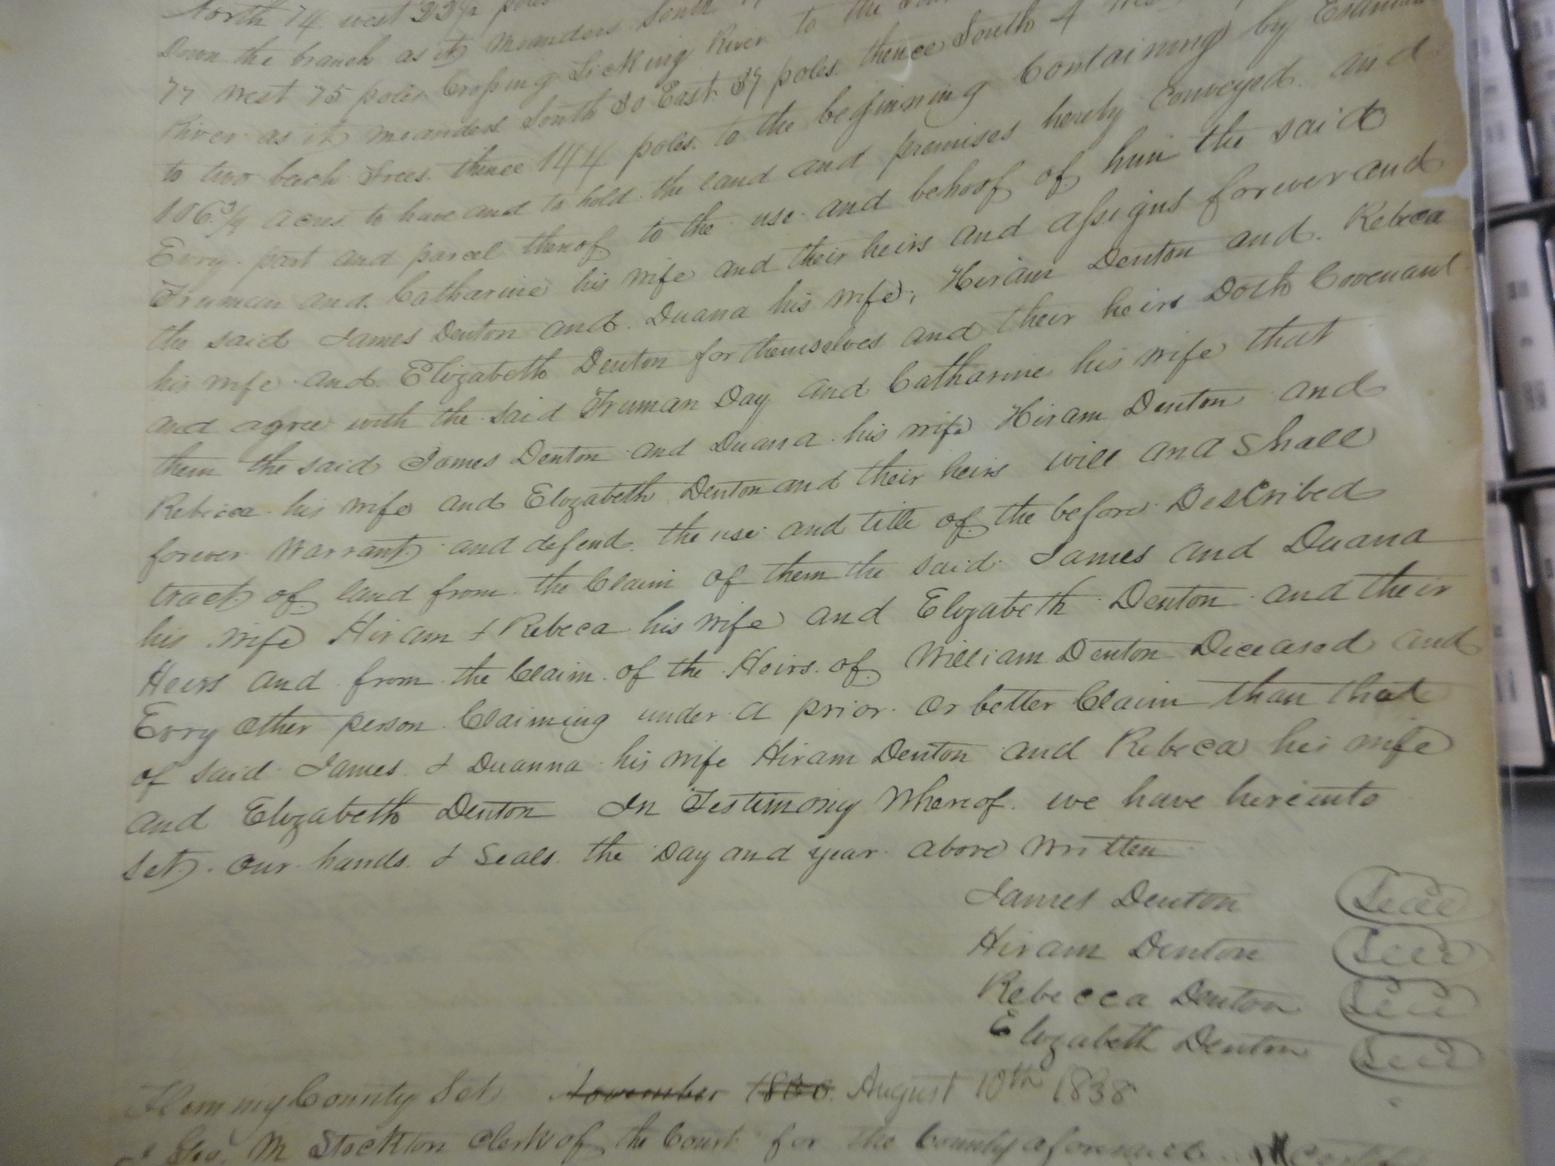 North 74 west 22½ poles
Down the branch as it meanders South
77 west 75 poles Crossing Licking River to the
River as it meanders South 30 East 37 poles thence South 4
to two beach Trees thence 144 poles to the beginning Containing by Estimation
106 3/4 acres to have and to hold the land and premises hereby Conveyed and
Evry part and parcel thereof to the use and behoof of him the said
Truman and Catharine his wife and their heirs and assigns forever and
the said James Denton and Duana his wife, Hiram Denton and Rebeca
his wife and Elizabeth Denton for themselves and their heirs Doth Covenant
and agree with the said Truman Day and Catharine his wife that
them the said James Denton and Duana his wife Hiram Denton and
Rebecca his wife and Elizabeth Denton and their heirs will and Shall
forever Warrant and defend the use and title of the before Described
tract of land from the Claim of them the said James and Duana
his wife Hiram & Rebeca his wife and Elizabeth Denton and their
Heirs and from the Claim of the Heirs of William Denton Diceased and
Evry other person Claiming under a prior or better Claim than that
of said James & Duanna his wife Hiram Denton and Rebeca his wife
and Elizabeth Denton In Testimony Whereof we have hereunto
set our hands & Seals the Day and year above Written
James Denton Seal
Hiram Denton Seal
Rebecca Denton Seal
Elizabeth Denton Seal
Fleming County Set November 1830 August 10th 1838
I Geo. M Stockton Clerk of the Court for the County aforesaid